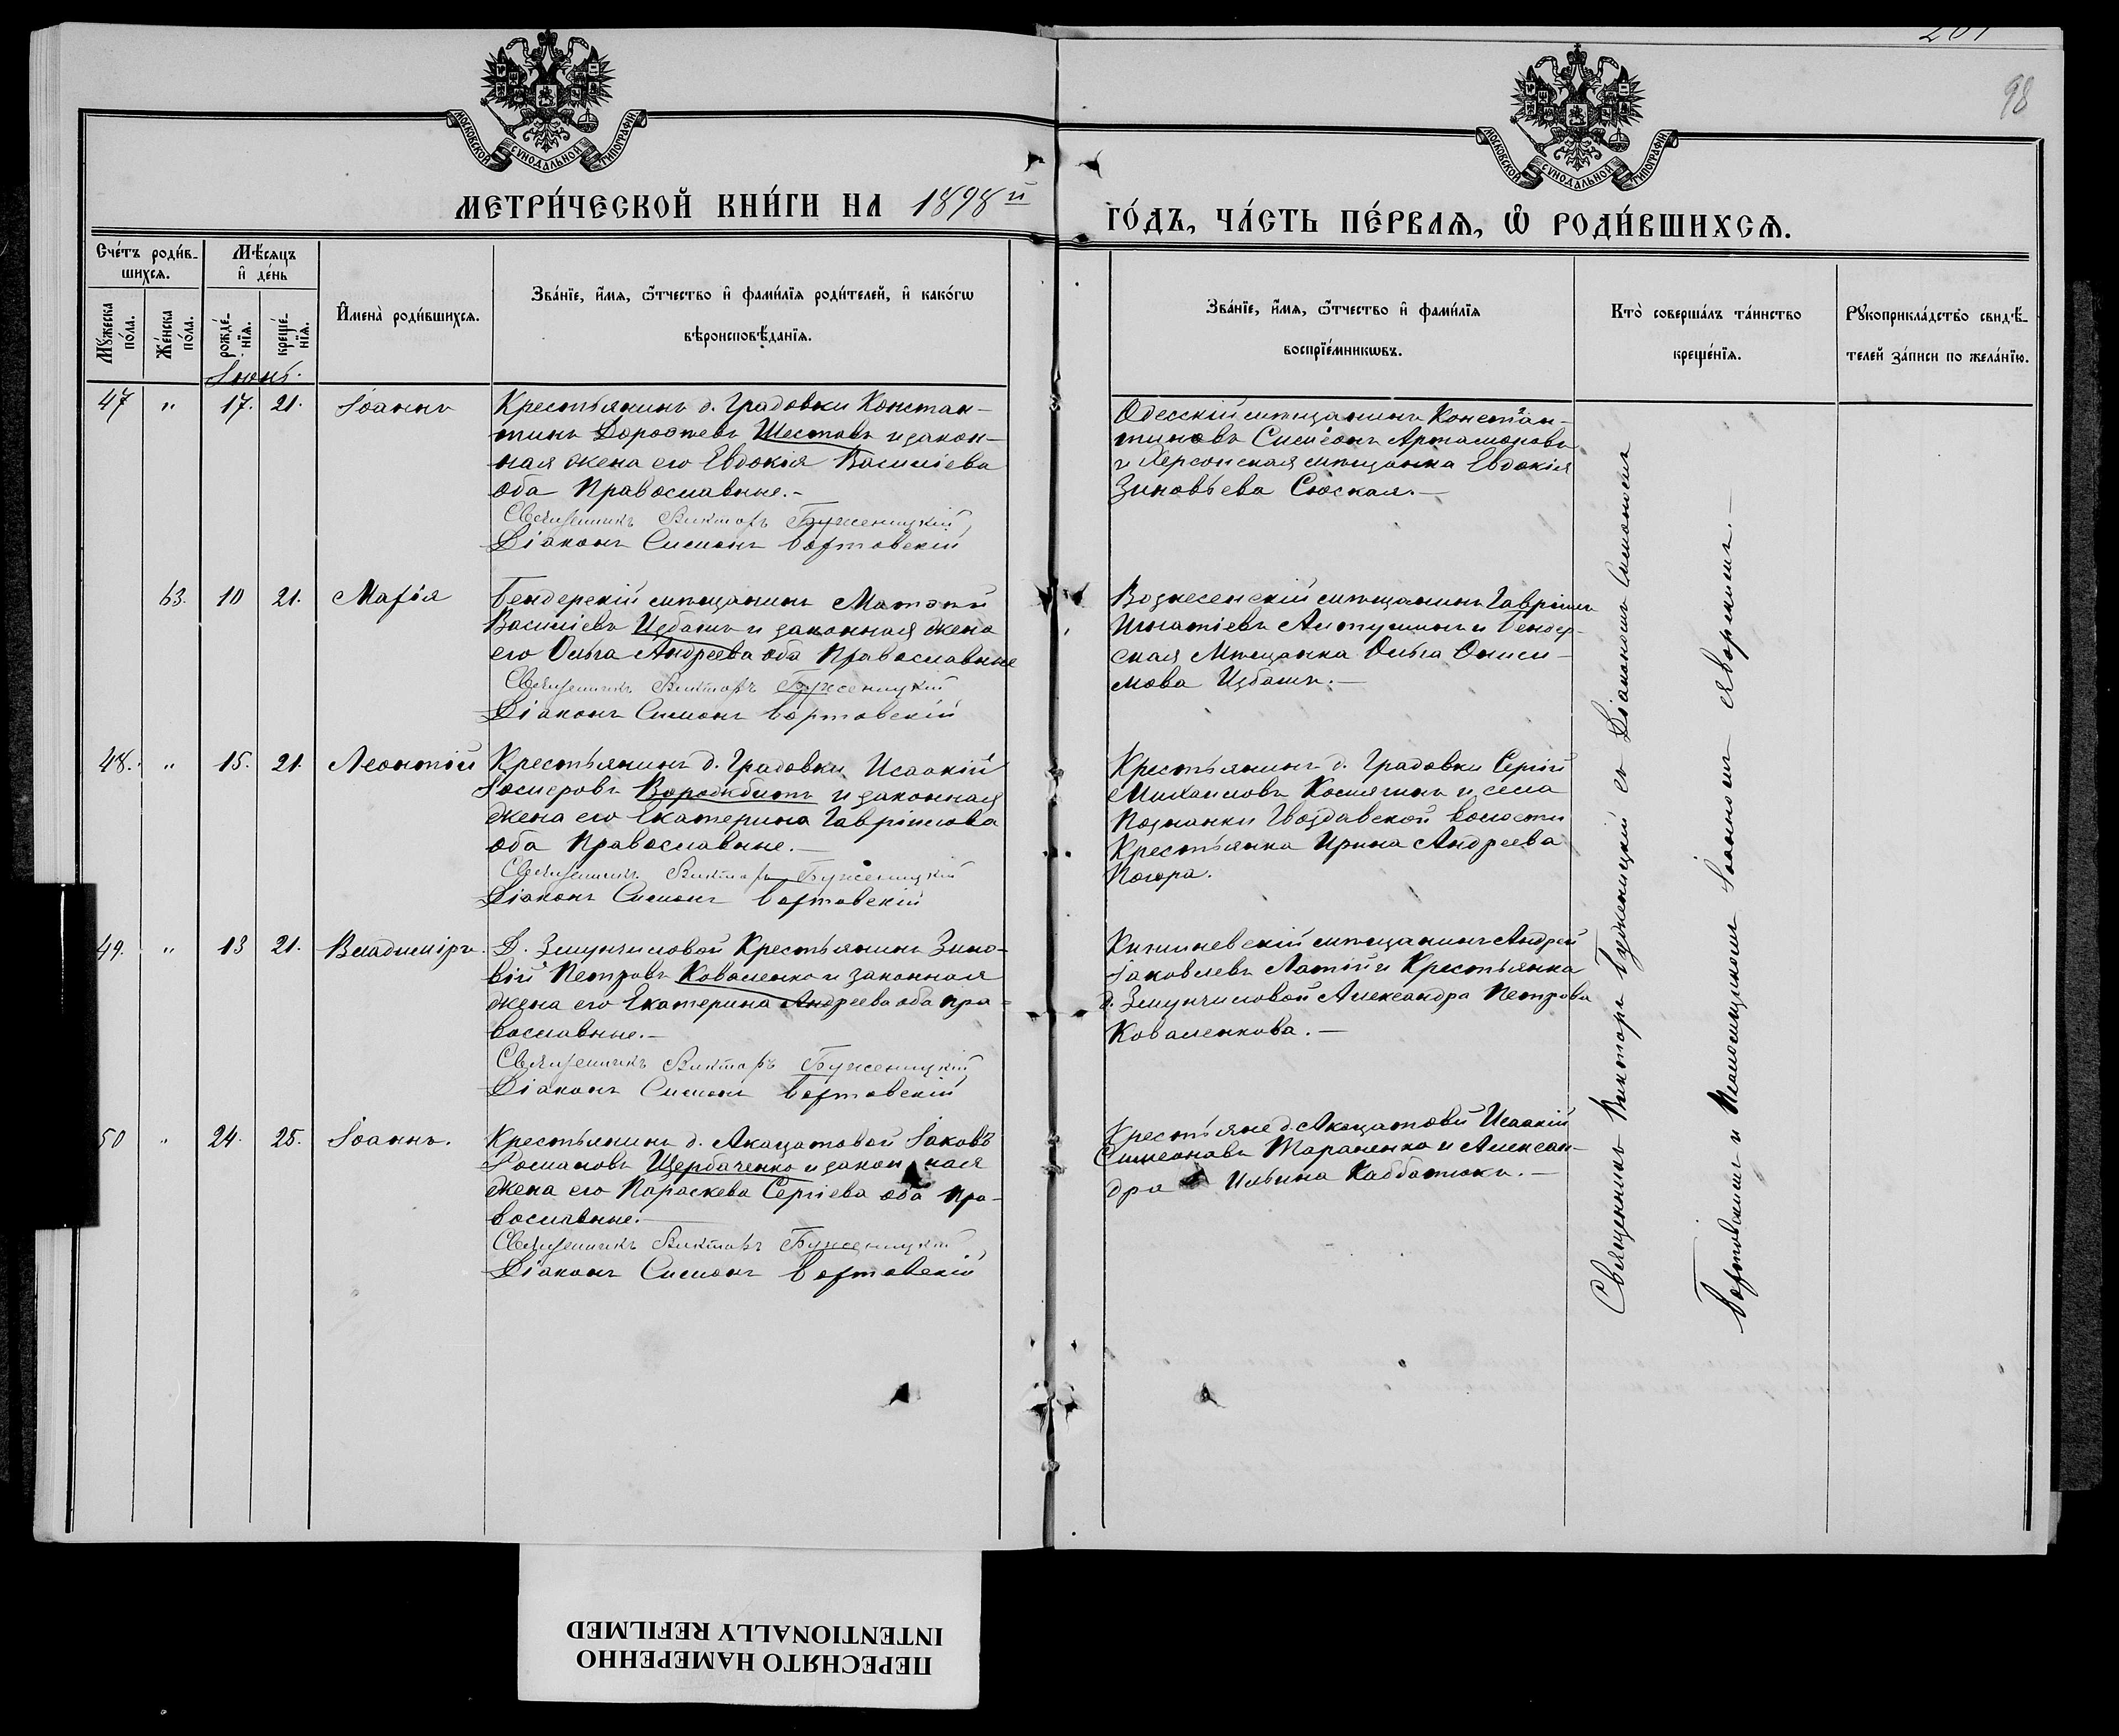 98
МОСКОВСКОЙ СѴНОДАЛЬНОЙ ТИПОГРАФІИ
МОСКОВСКОЙ СѴНОДАЛЬНОЙ ТИПОГРАФІИ
МЕТРИ́ЧЕСКОЙ КНИ́ГИ НА 1898й
ГО́ДЪ, ЧА́СТЬ ПЕ́РВАѦ, Ѡ҆ РОДИ́ВШИХСѦ.
Сче́тъ роди́в-
шихсѧ.
Мꙋжеска
по́ла.
Же́нска
по́ла.
Мѣ́сѧцъ
и҆ де́нь
рожде́-
нїѧ.
креще́-
нїѧ.
И҆мена̀ роди́вшихсѧ.
Зва́нїе, и҆́мѧ, ѻ҆́тчество и҆ фами́лїѧ роди́телей, и҆ како́гѡ
вѣроисповѣ́данїѧ.
Зва́нїе, и҆́мѧ, ѻ҆́тчество и҆ фами́лїѧ
воспрїе́мникѡвъ.
Кто̀ соверша́лъ та́инство
креще́нїѧ.
Рꙋкоприкла́дство свидѣ́-
телей за́писи по жела́нїю.
Іюнь.
47 " 17. 21. Іоаннъ
Крестьянинъ д. Градовки Констан-
тинъ Дороѳеевъ Шестовъ и закон-
ная жена его Евдокія Василіева
оба Православные.-
Священникъ Викторъ Буженицкій
Діаконъ Симонъ Бортовскій
Одесскій мѣщанинъ Констан-
тиновъ Симеонъ Артамоновъ
и Херсонская мѣщанка Евдокія
Зиновьева Сюская.-
63. 10 21. Марія
Бендерскій мѣщанинъ Матѳей
Василіевъ Избашъ и законная жена
его Ольга Андреева оба Православные
Священникъ Викторъ Буженицкій
Діаконъ Симонъ Бортовскій
Вознесенскій мѣщанинъ Гавріилъ
Игнатіевъ Алтушинъ и Бендер-
ская Мѣщанка Ольга Ониси-
мова Избашъ.-
48. " 15. 21. Леонтій
Крестьянинъ д. Градовки Исаакій
Воробкбитъ и законная
жена его Екатерина Гавріилова
оба Православные.-
Священникъ Викторъ Буженицкій
Діаконъ Симонъ Бортовскій
Крестьянинъ д. Градовки Сергій
Михаиловъ Косягинъ и села
Познанки Гвоздавской волости
Крестьянка Ирина Андреева
Погора.
49. " 13 21. Владиміръ.
Д. Змунчиловой Крестьянинъ Зино-
вій Петровъ Коваленко и законная
жена его Екатерина Андреева оба пра-
вославные.-
Священникъ Викторъ Буженицкій
Діаконъ Симонъ Бортовскій
Кишиневскій мѣщанинъ Андрей
Іаковлевъ Латій и Крестьянка
д. Змунчиловой Александра Петрова
Коваленкова.-
50 " 24. 25. Іоаннъ.
Крестьянинъ д. Акацатовой Іаковъ
Романовъ Щербаченко и законная
жена его Параскева Сергіева оба Пра-
вославные.-
Священникъ Викторъ Буженицкій
Діаконъ Симонъ Бортовскій
Крестьяне д. Акацатовой Исаакій
Симеоновъ Тараненко и Алексан-
дра Ильина Каббатюкъ.-
Священникъ Викторъ Буженицкій съ Діакономъ Симономъ
Бортовскимъ и Псаломщикомъ Іоанномъ Яворскимъ.-
ПЕРЕСНЯТО НАМЕРЕННО
INTENTIONALLY REFILMED